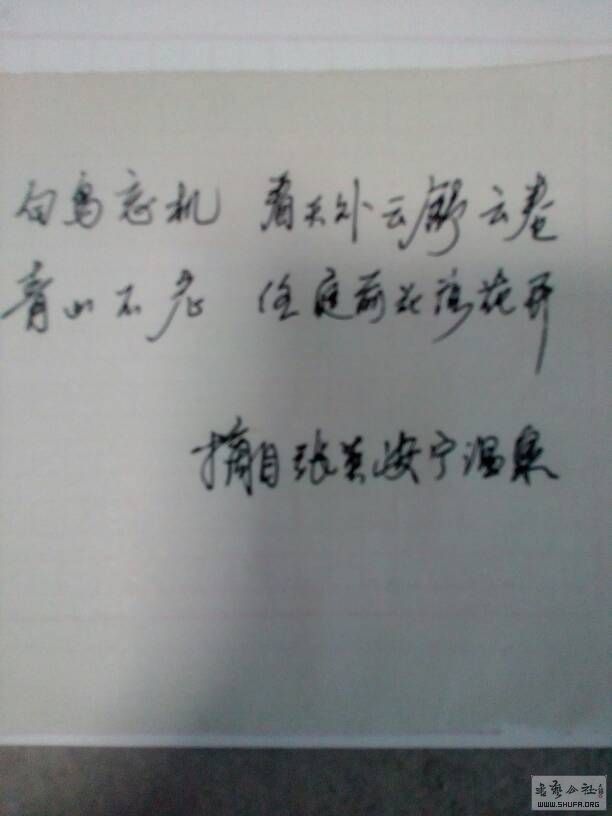 白鸟忘机 看天外云舒云卷
青山不老 任庭前花落花开
摘自张英安宁温泉
书艺公社
WWW.SHUFA.ORG